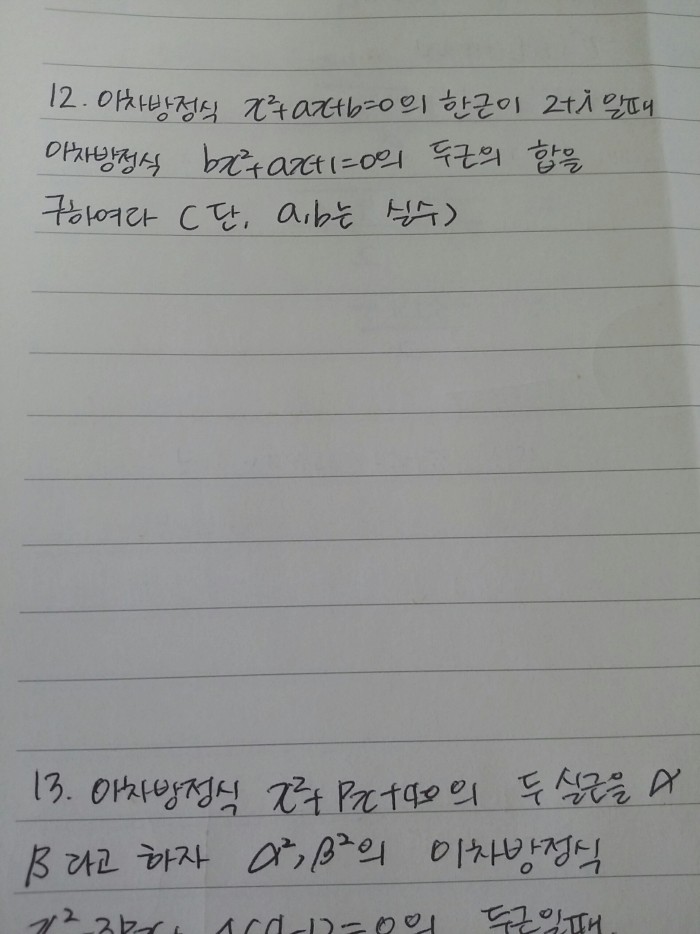 12. 이차방정식 x²+ax+b=0의 한근이 2+i 일때
이차방정식 bx²+ax+1=0의 두근의 합을
구하여라 (단, a,b는 실수)
13. 이차방정식 x²+px+q=0의 두 실근을 α
β라고 하자 α²,β²의 이차방정식
x²-3px+4(q-1)=0의 두근일때,